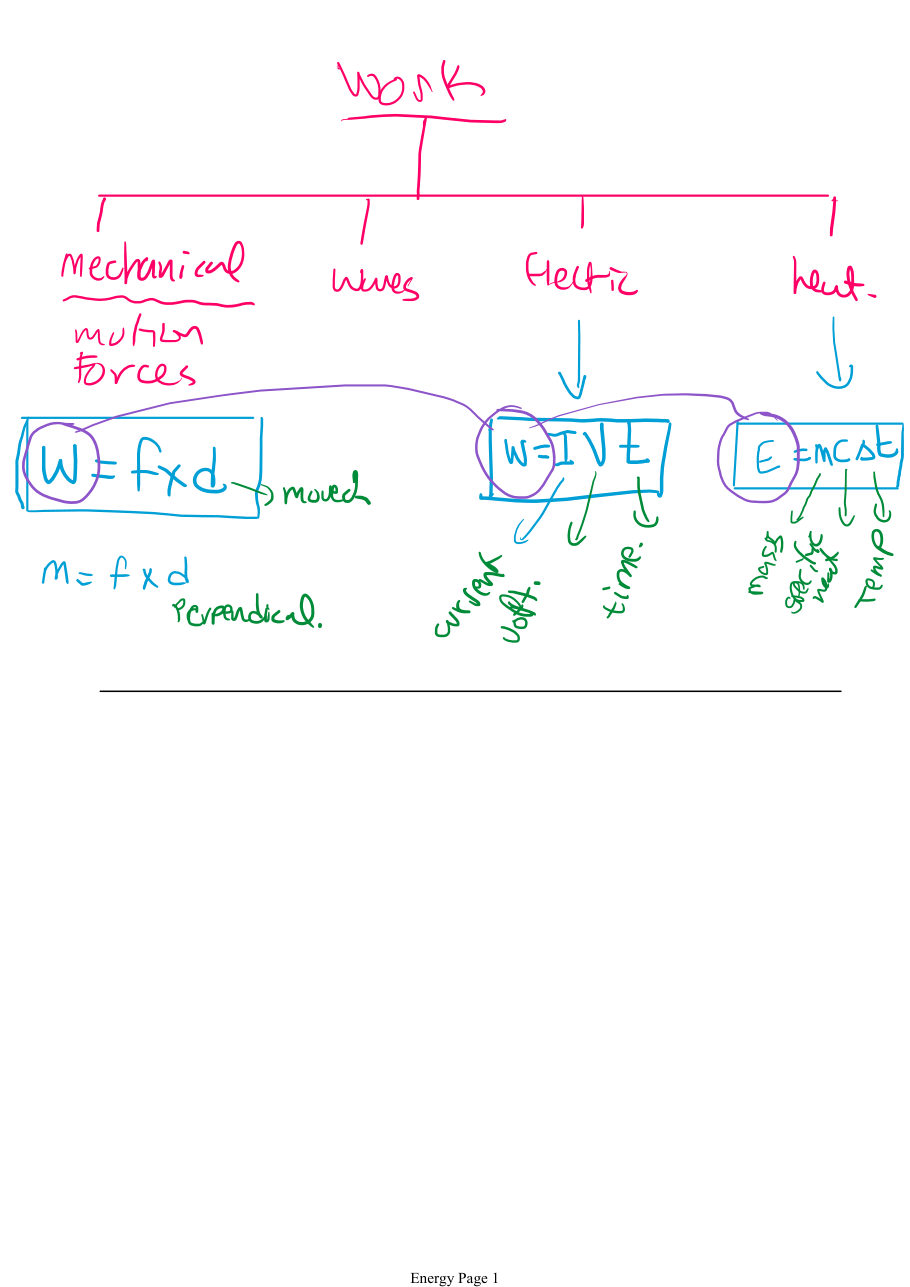 Work
Mechanical
Waves
Electric
heat.
motion
forces
W = f x d
moved
W = I V t
E = m c Δt
current
volt.
time.
mass
specific
heat
Temp
M = f x d
Perpendical.
Energy Page 1